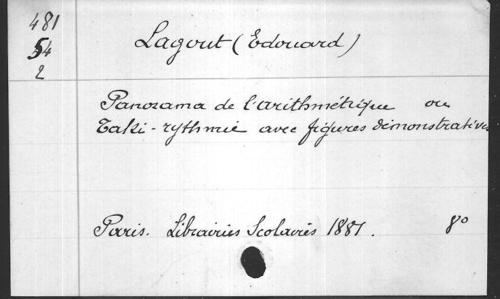 481
54
2
Lagout (Edouard)
Panorama de l'arithmétique ou
Taki-rythmie avec figures démonstratives
Paris. Librairies Scolaires 1881. 8o